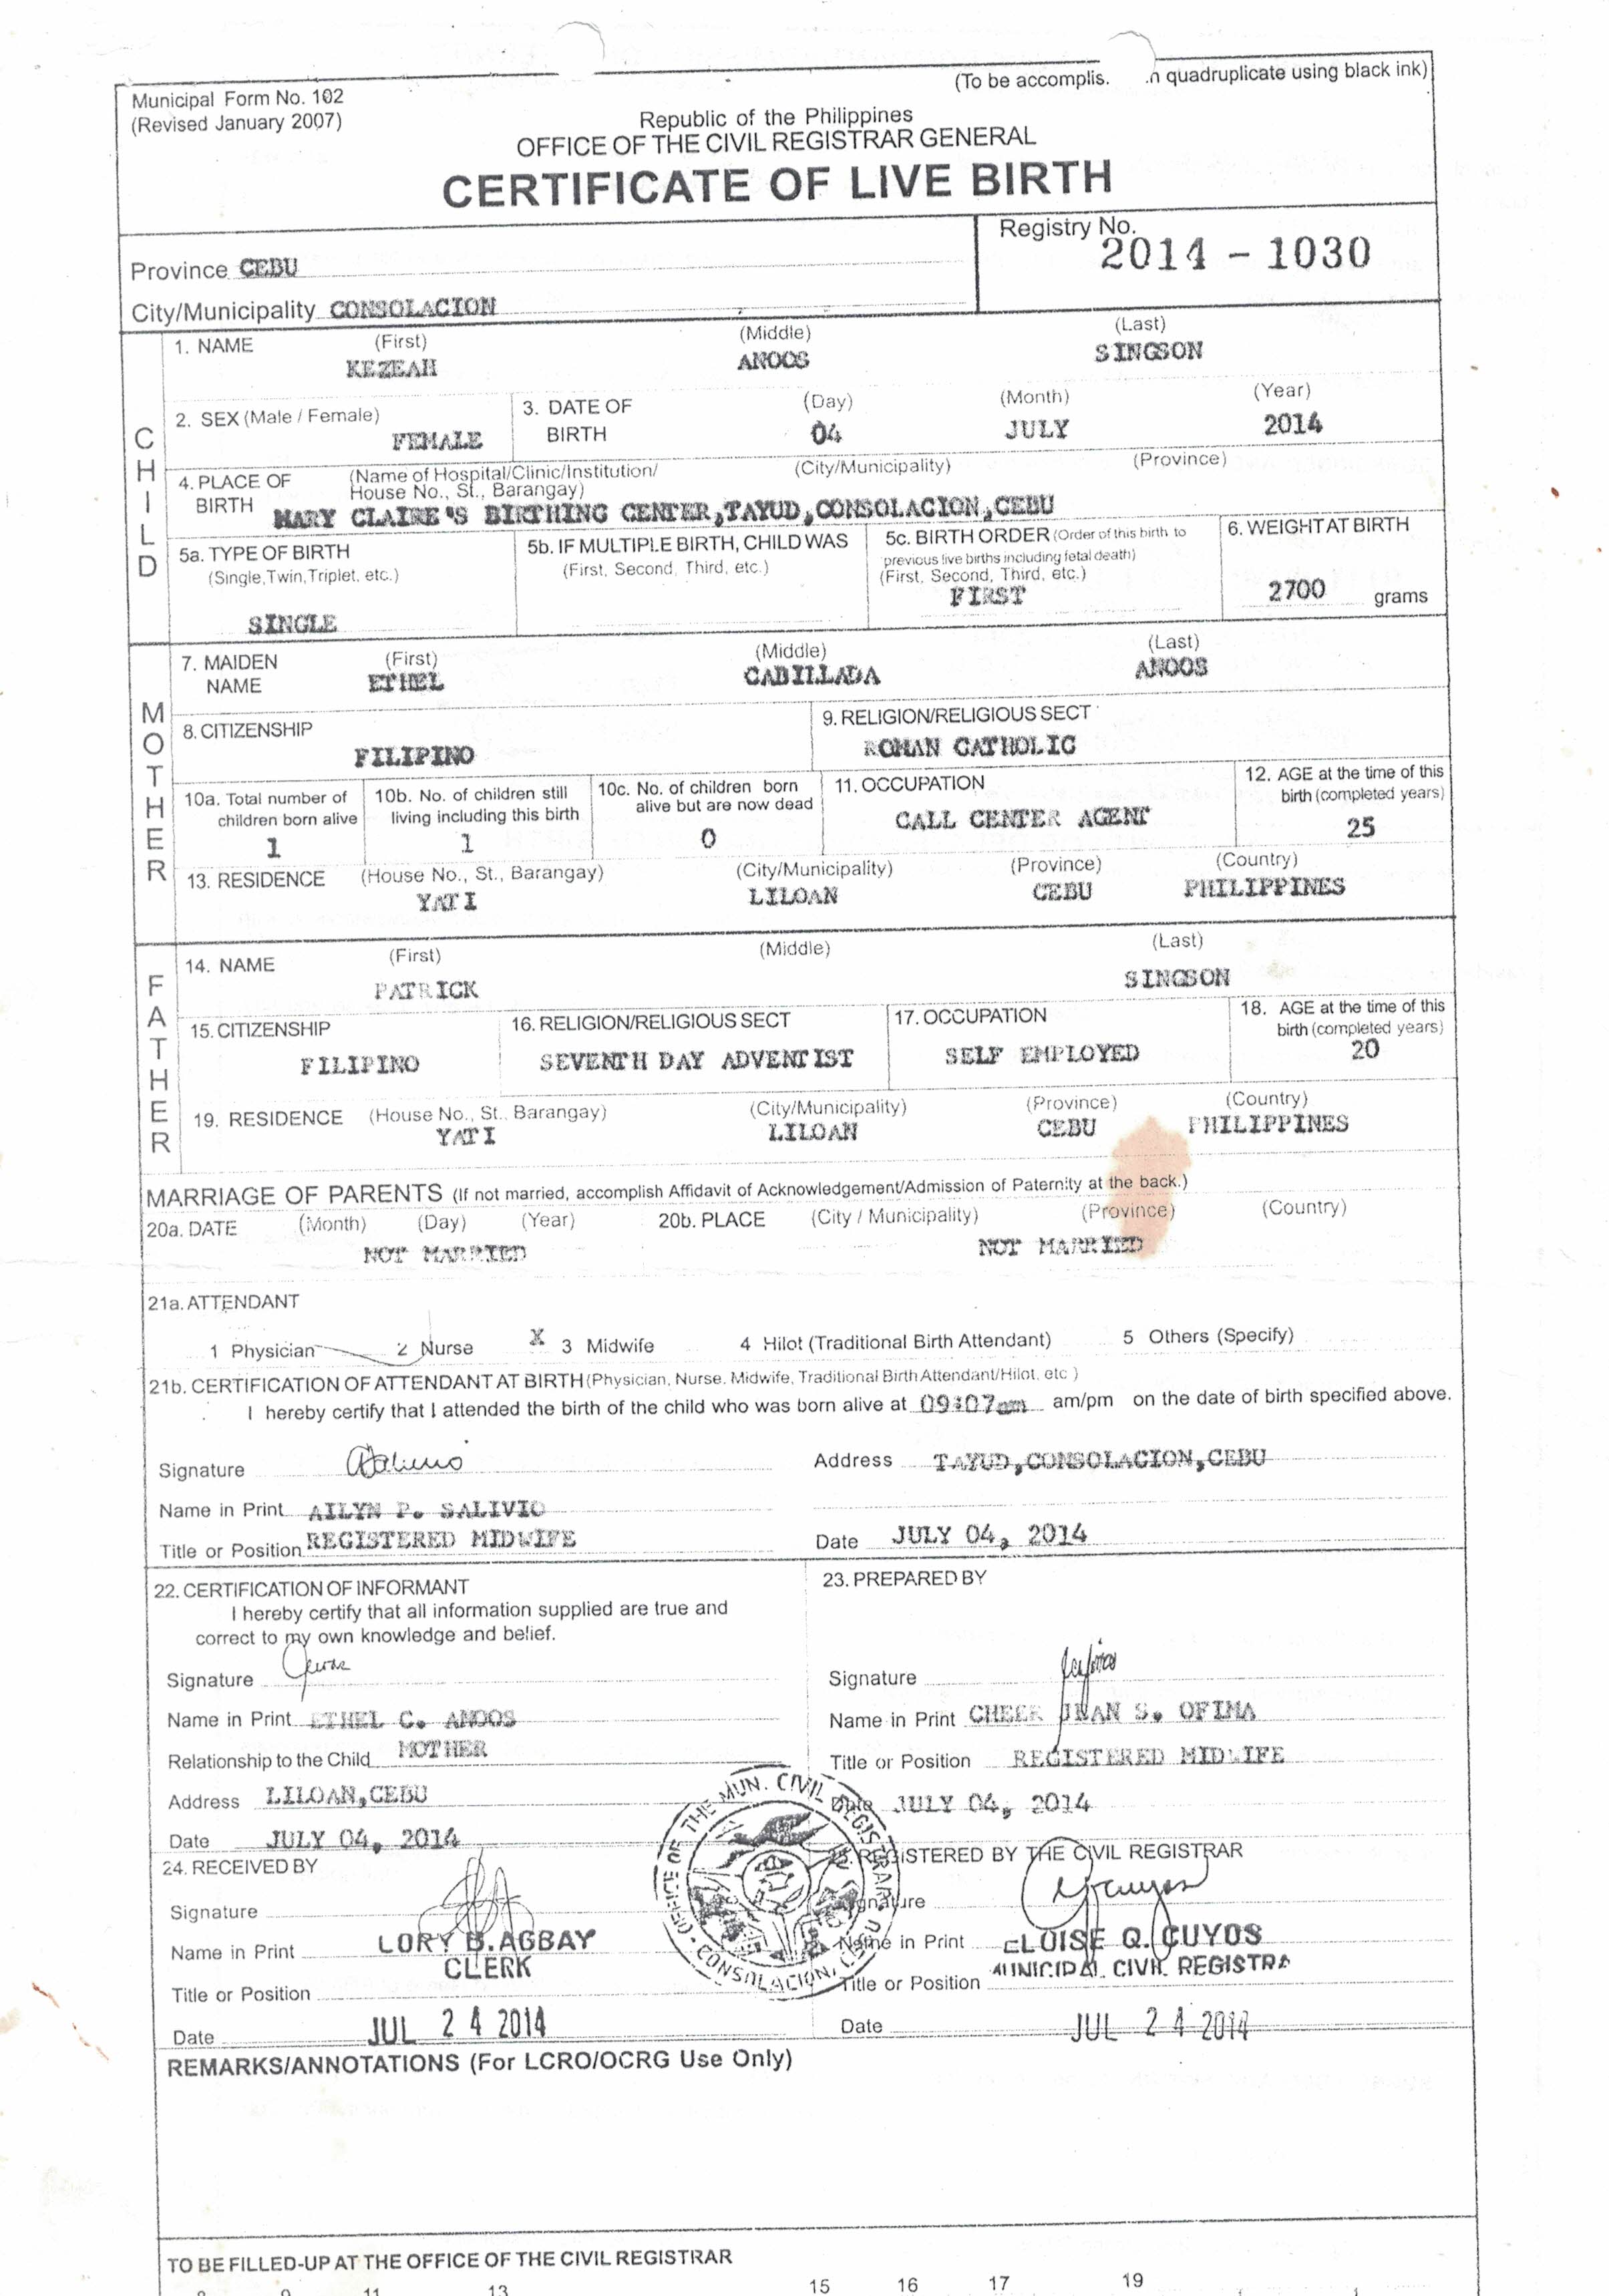 (To be accomplis. n quadruplicate using black ink)
Municipal Form No. 102
(Revised January 2007)
Republic of the Philippines
OFFICE OF THE CIVIL REGISTRAR GENERAL
CERTIFICATE OF LIVE BIRTH
Province CEBU
Registry No.
2014 - 1030
City/Municipality CONSOLACION
CHILD
1. NAME (First) (Middle) (Last)
KEZEAH ANOOS SINGSON
2. SEX (Male / Female) 3. DATE OF BIRTH (Day) (Month) (Year)
FEMALE 04 JULY 2014
4. PLACE OF BIRTH (Name of Hospital/Clinic/Institution/ House No., St., Barangay) (City/Municipality) (Province)
MARY CLAIRE'S BIRTHING CENTER,TAYUD,CONSOLACION,CEBU
5a. TYPE OF BIRTH (Single,Twin,Triplet, etc.)
SINGLE
5b. IF MULTIPLE BIRTH, CHILD WAS (First, Second, Third, etc.)
5c. BIRTH ORDER (Order of this birth to previous live births including fetal death) (First, Second, Third, etc.)
FIRST
6. WEIGHT AT BIRTH
2700 grams
MOTHER
7. MAIDEN NAME (First) (Middle) (Last)
ETHEL CABILLADA ANOOS
8. CITIZENSHIP
FILIPINO
9. RELIGION/RELIGIOUS SECT
ROMAN CATHOLIC
10a. Total number of children born alive
1
10b. No. of children still living including this birth
1
10c. No. of children born alive but are now dead
0
11. OCCUPATION
CALL CENTER AGENT
12. AGE at the time of this birth (completed years)
25
13. RESIDENCE (House No., St., Barangay) (City/Municipality) (Province) (Country)
YATI LILOAN CEBU PHILIPPINES
FATHER
14. NAME (First) (Middle) (Last)
PATRICK SINGSON
15. CITIZENSHIP
FILIPINO
16. RELIGION/RELIGIOUS SECT
SEVENTH DAY ADVENTIST
17. OCCUPATION
SELF EMPLOYED
18. AGE at the time of this birth (completed years)
20
19. RESIDENCE (House No., St., Barangay) (City/Municipality) (Province) (Country)
YATI LILOAN CEBU PHILIPPINES
MARRIAGE OF PARENTS (If not married, accomplish Affidavit of Acknowledgement/Admission of Paternity at the back.)
20a. DATE (Month) (Day) (Year) 20b. PLACE (City / Municipality) (Province) (Country)
NOT MARRIED NOT MARRIED
21a. ATTENDANT
1 Physician 2 Nurse X 3 Midwife 4 Hilot (Traditional Birth Attendant) 5 Others (Specify)
21b. CERTIFICATION OF ATTENDANT AT BIRTH (Physician, Nurse, Midwife, Traditional Birth Attendant/Hilot, etc )
I hereby certify that I attended the birth of the child who was born alive at 09:07am am/pm on the date of birth specified above.
Signature
Address TAYUD,CONSOLACION,CEBU
Name in Print AILYN P. SALIVIO
Title or Position REGISTERED MIDWIFE
Date JULY 04, 2014
22. CERTIFICATION OF INFORMANT
I hereby certify that all information supplied are true and
correct to my own knowledge and belief.
Signature
Name in Print ETHEL C. ANOOS
Relationship to the Child MOTHER
Address LILOAN,CEBU
Date JULY 04, 2014
23. PREPARED BY
Signature
Name in Print S. OFIMA
Title or Position REGISTERED MIDWIFE
Date JULY 04, 2014
OFFICE OF THE MUN. CIVIL REGISTRAR CONSOLACION, CEBU
24. RECEIVED BY
Signature
Name in Print LORY B. AGBAY
CLERK
Title or Position
Date JUL 24 2014
REGISTERED BY THE CIVIL REGISTRAR
Signature
Name in Print ELOISE Q. CUYOS
MUNICIPAL CIVIL REGISTRA
Title or Position
Date JUL 24 2014
REMARKS/ANNOTATIONS (For LCRO/OCRG Use Only)
TO BE FILLED-UP AT THE OFFICE OF THE CIVIL REGISTRAR
8 9 11 13 15 16 17 19